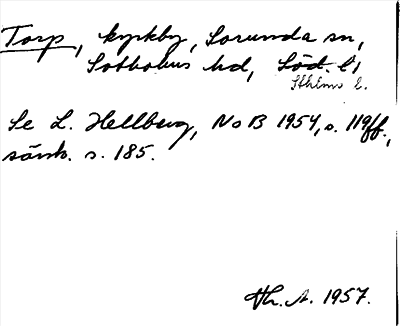 Torp, kyrkby, Sorunda sn,
Sotholms hd, Söd. l.,
Sthlms l.
Se L. Hellberg, NoB 1954, s. 119ff.,
särsk. s. 185.
Hr. A. 1957.